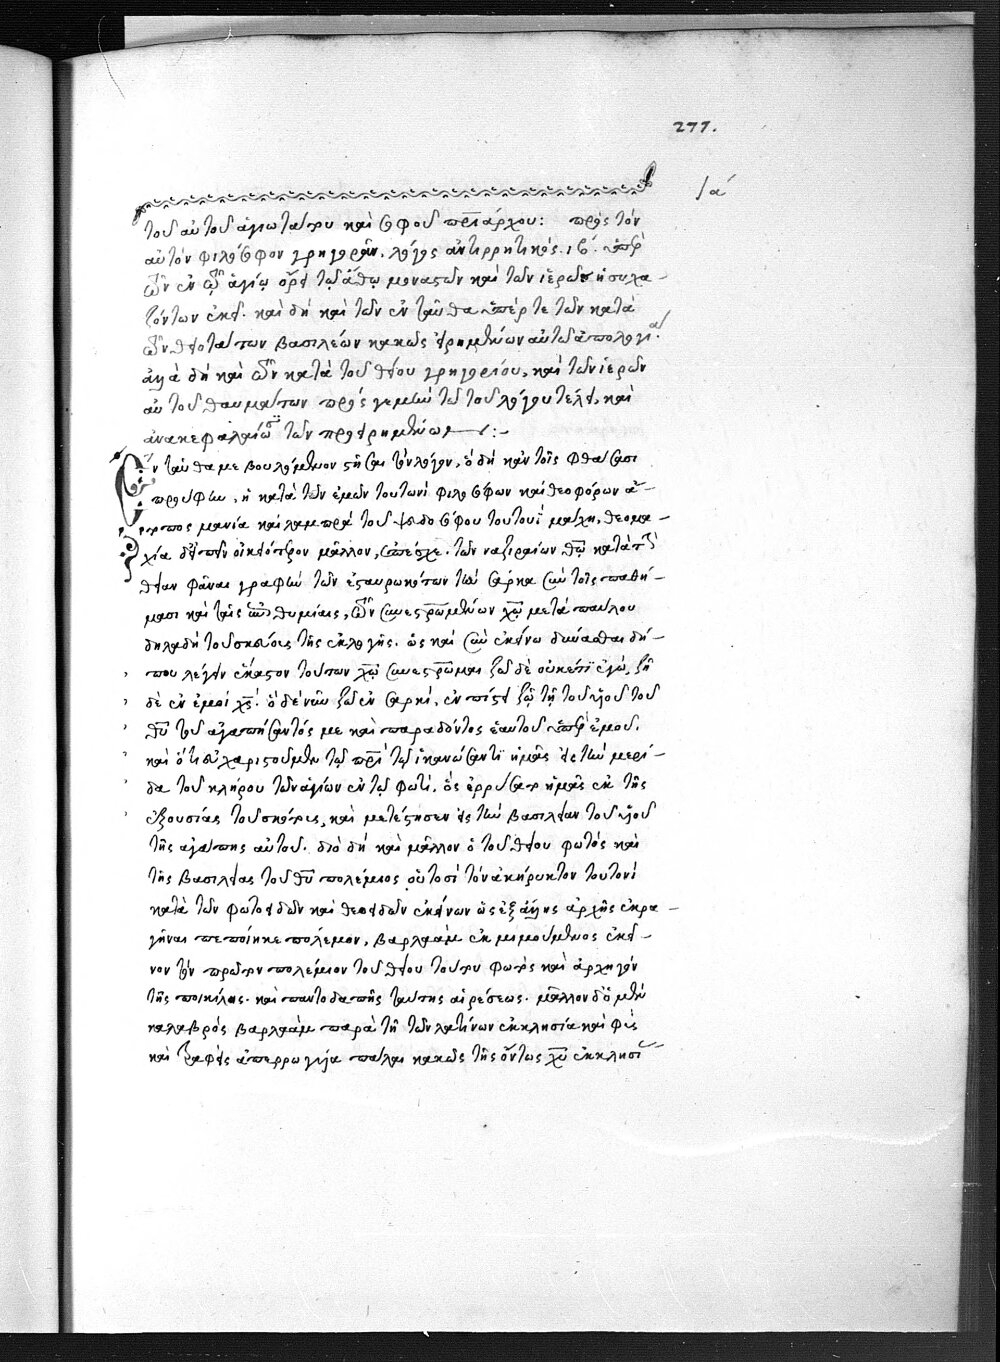 277.
/α´
τοῦ αὐτοῦ ἁγιωτάτου καὶ σοφοῦ πριάρχου: πρὸς τὸν
αὐτὸν φιλόσοφον γρηγορᾶν, λόγος ἀντιρρητικός. ιβ´. ὑπὲρ
τῶν ἐν τῷ ἁγίῳ ὄρει τῷ ἄθῳ μοναστῶν καὶ τῶν ἱερῶς ἡσυχα-
ζόντων ἐκεῖ. καὶ δὴ καὶ τῶν ἐνταῦθα ὑπέρ τε τῶν κατὰ
τῶν θειοτάτων βασιλέων κακῶς εἰρημένων αὐτῷ ἀπολογία.
ἀλλὰ δὴ καὶ τῶν κατὰ τοῦ θείου γρηγορίου, καὶ τῶν ἱερῶν
αὐτοῦ θαυμάτων πρὸς γε μὴν τῷ τοῦ λόγου τέλει, καὶ
ἀνακεφαλαίωσις τῶν προειρημένων:-
Ἐνταῦθά με βουλόμενον στῆσαι τὸν λόγον, ὃ δὴ κἀν τοῖς φθάσασι
προύφην, ἡ κατὰ τῶν ἐμῶν τουτωνὶ φιλοσόφων καὶ θεοφόρων ἄ-
τοπος μανία καὶ λαμπρὰ τοῦ ψευδοσόφου τουτουῒ μάχη, θεομα-
χία δ' εἰπεῖν οἰκειότερον μᾶλλον, ἀπέσχε. τῶν ναζιραίων θῷ κατὰ τὴν
θείαν φάναι γραφὴν τῶν ἐσταυρωκότων τὴν σάρκα σὺν τοῖς παθή-
μασι καὶ ταῖς ἐπιθυμίαις, τῶν συνεσταυρωμένων χῷ μετὰ παύλου
δηλαδὴ τοῦ σκεύους τῆς ἐκλογῆς. ὡς καὶ σὺν ἐκείνῳ δύνασθαι δή-
που λέγειν ἕκαστον τούτων χῷ συνεσταύρωμαι ζῶ δὲ οὐκέτι ἐγώ, ζῇ
δὲ ἐν ἐμοὶ χς. ὃ δὲ νῦν ζῶ ἐν σαρκί, ἐν πίστει ζῶ τῇ τοῦ υἱοῦ τοῦ
θυ τοῦ ἀγαπήσαντός με καὶ παραδόντος ἑαυτὸν ὑπὲρ ἐμοῦ.
καὶ ὅτι εὐχαριστοῦμεν τῷ πρὶ τῷ ἱκανώσαντι ἡμᾶς εἰς τὴν μερί-
δα τοῦ κλήρου τῶν ἁγίων ἐν τῷ φωτί, ὃς ἐρρύσατο ἡμᾶς ἐκ τῆς
ἐξουσίας τοῦ σκότους, καὶ μετέστησεν εἰς τὴν βασιλείαν τοῦ υἱοῦ
τῆς ἀγάπης αὐτοῦ. διὸ δὴ καὶ μᾶλλον ὁ τοῦ θείου φωτὸς καὶ
τῆς βασιλείας τοῦ θυ πολέμιος οὑτοσὶ τὸν ἀκήρυκτον τουτονὶ
κατὰ τῶν φωτοειδῶν καὶ θεοειδῶν ἐκείνων ὡς ἐξ ἄλλης ἀρχῆς ἐκρα-
γῆναι πεποίηκε πόλεμον, βαρλαὰμ ἐκμιμούμενος ἐκεῖ-
νον τὸν πρῶτον πολέμιον τοῦ θείου τούτου φωτὸς καὶ ἀρχηγὸν
τῆς ποικίλης. καὶ παντοδαπῆς ταύτης αἱρέσεως. μᾶλλον δ' ὁ μὲν
καλαβρὸς βαρλαὰμ παρὰ τῇ τῶν λατίνων ἐκκλησίᾳ καὶ φὺς
καὶ τραφεὶς ἀπερρωγυίᾳ πάλαι κακῶς τῆς ὄντως χυ ἐκκλησί